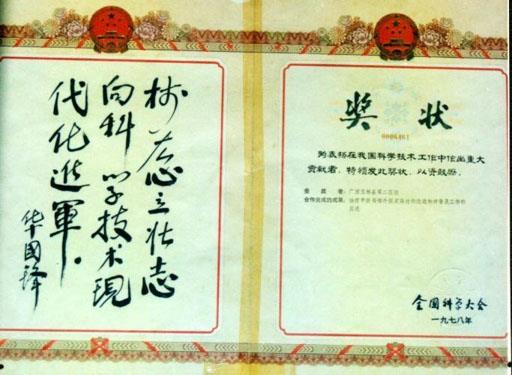 树雄心立壮志
向科学技术现
代化进军。
华国锋
奖状
0006461
为表扬在我国科学技术工作中作出重大
贡献者，特颁发此奖状，以资鼓励。
受奖者：
合作完成的成果：
全国科学大会
一九七八年